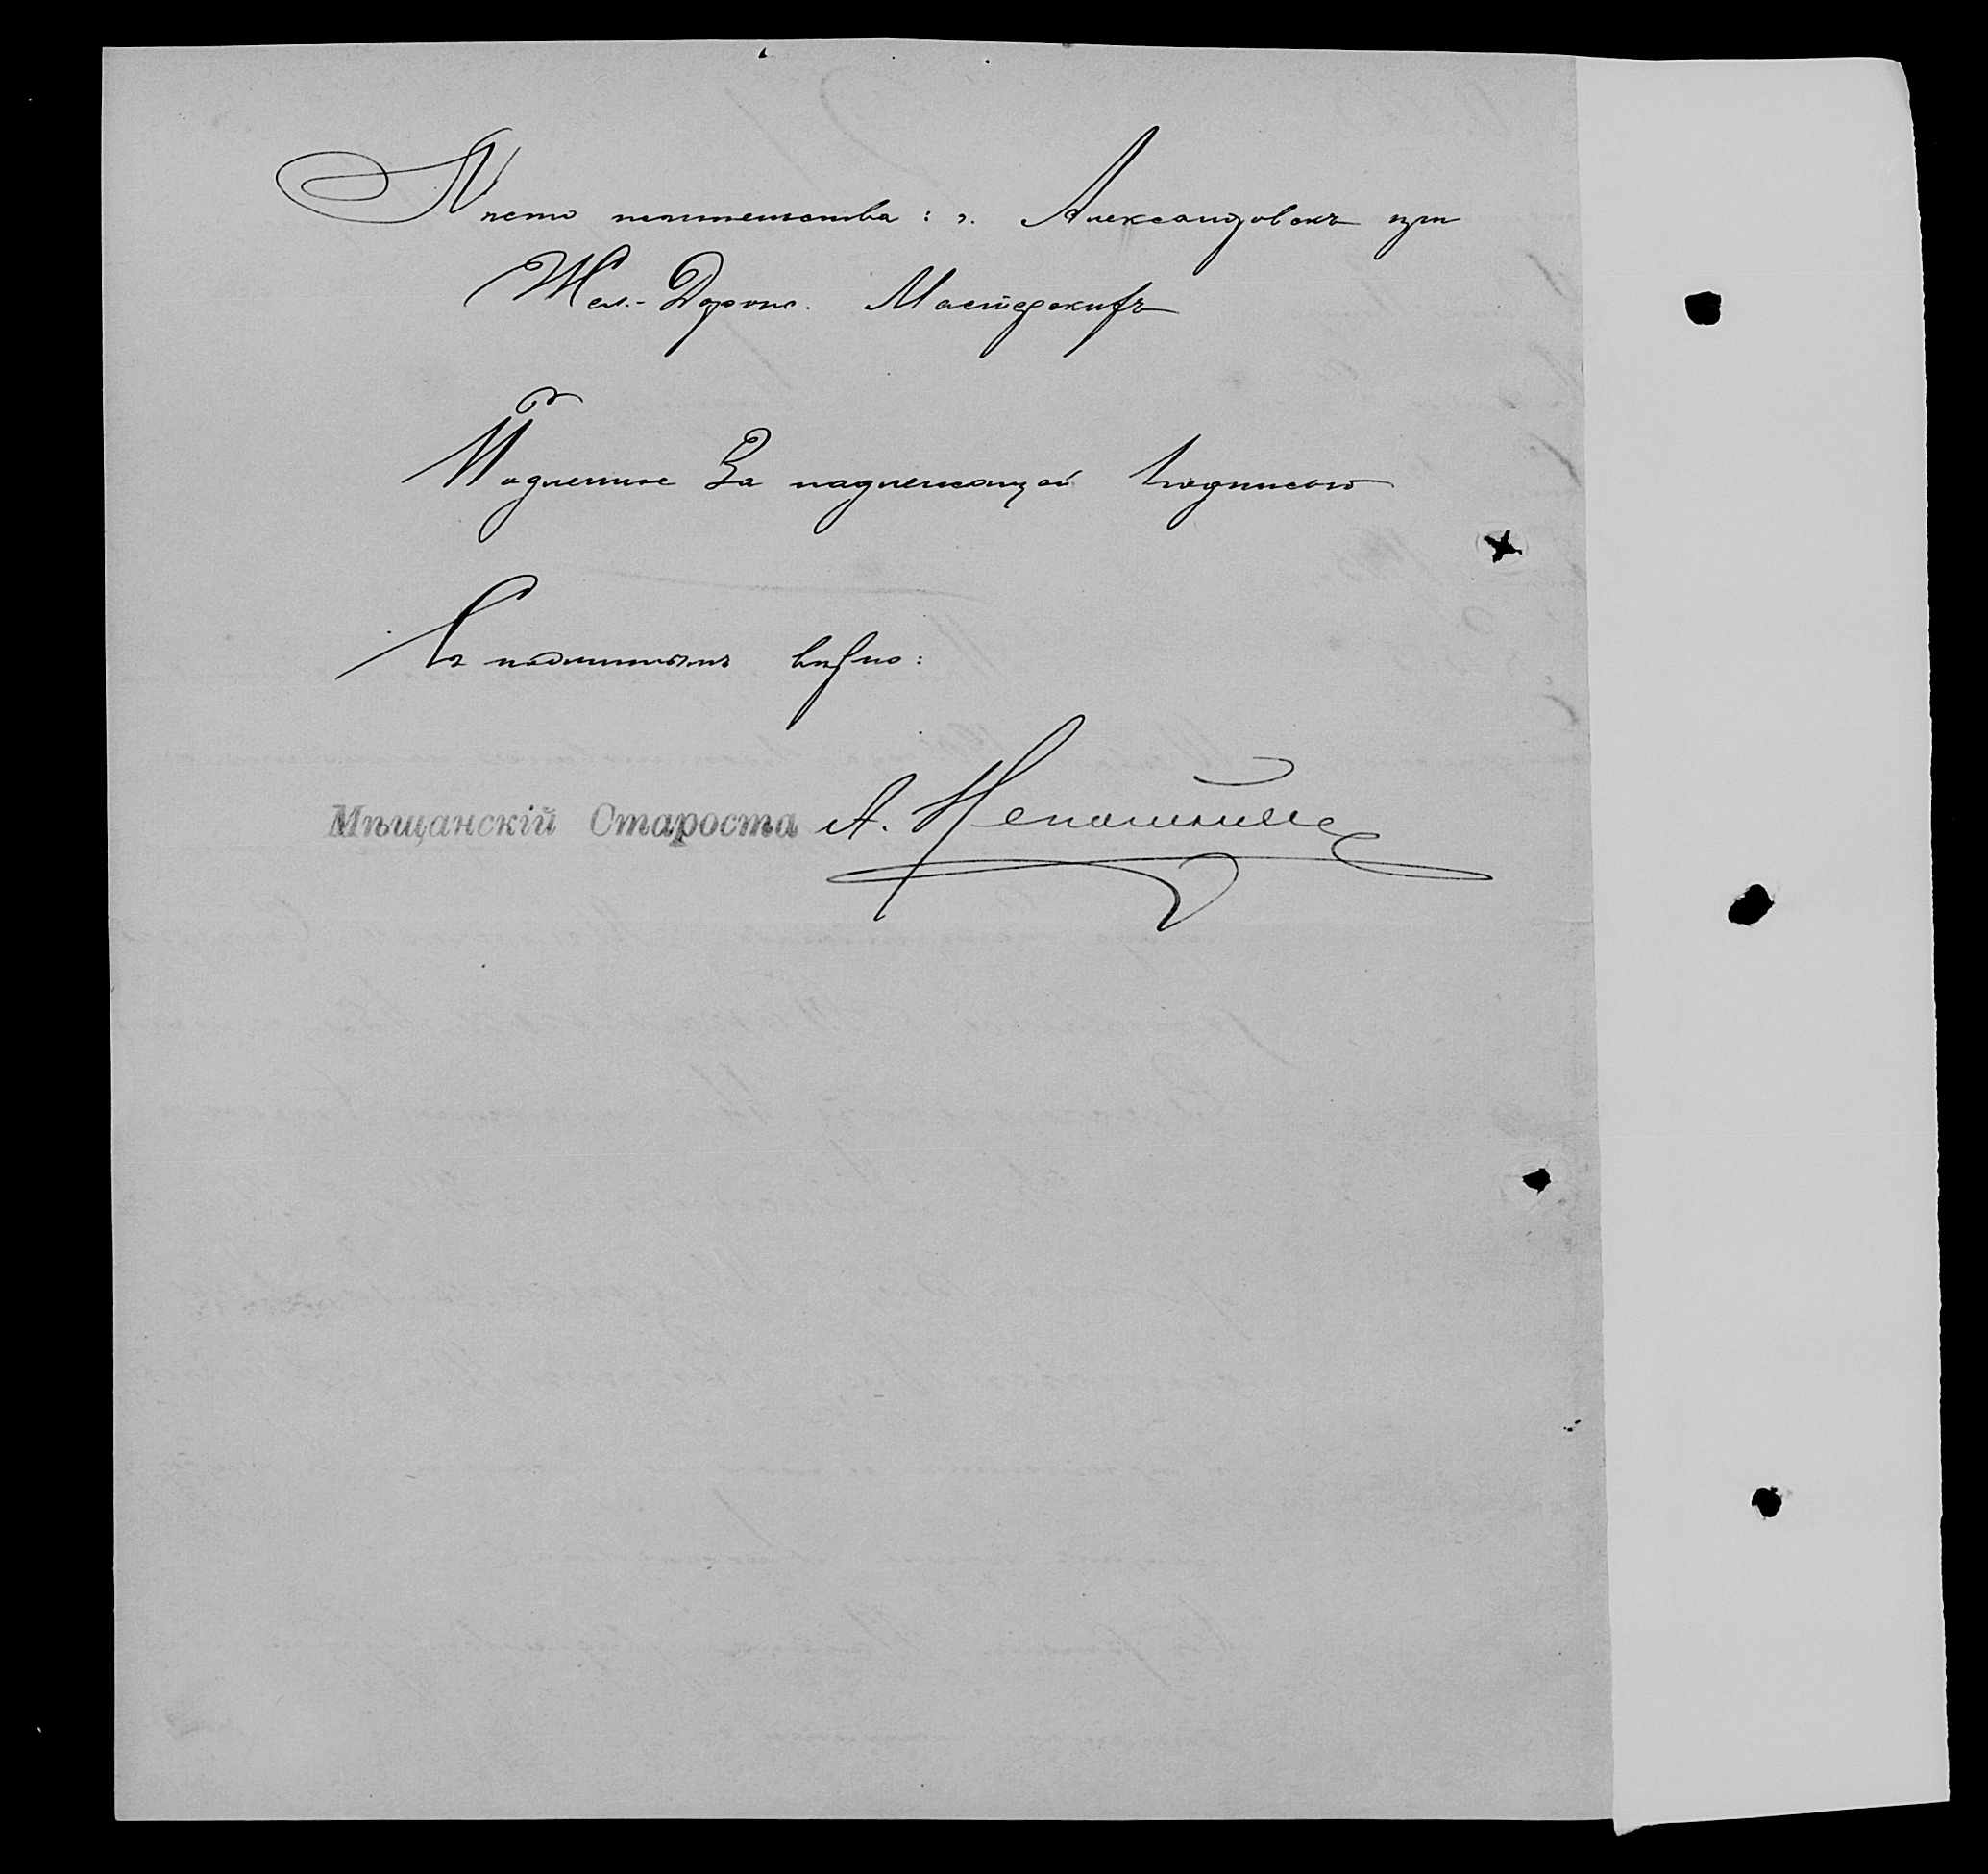 Мѣсто жительства: г. Александровскъ при
Жел.-Дорож. Мастерскихъ
Подленное За надлежащей подписью
Съ подлиннымъ вѣрно:
Мѣщанскій Староста А.